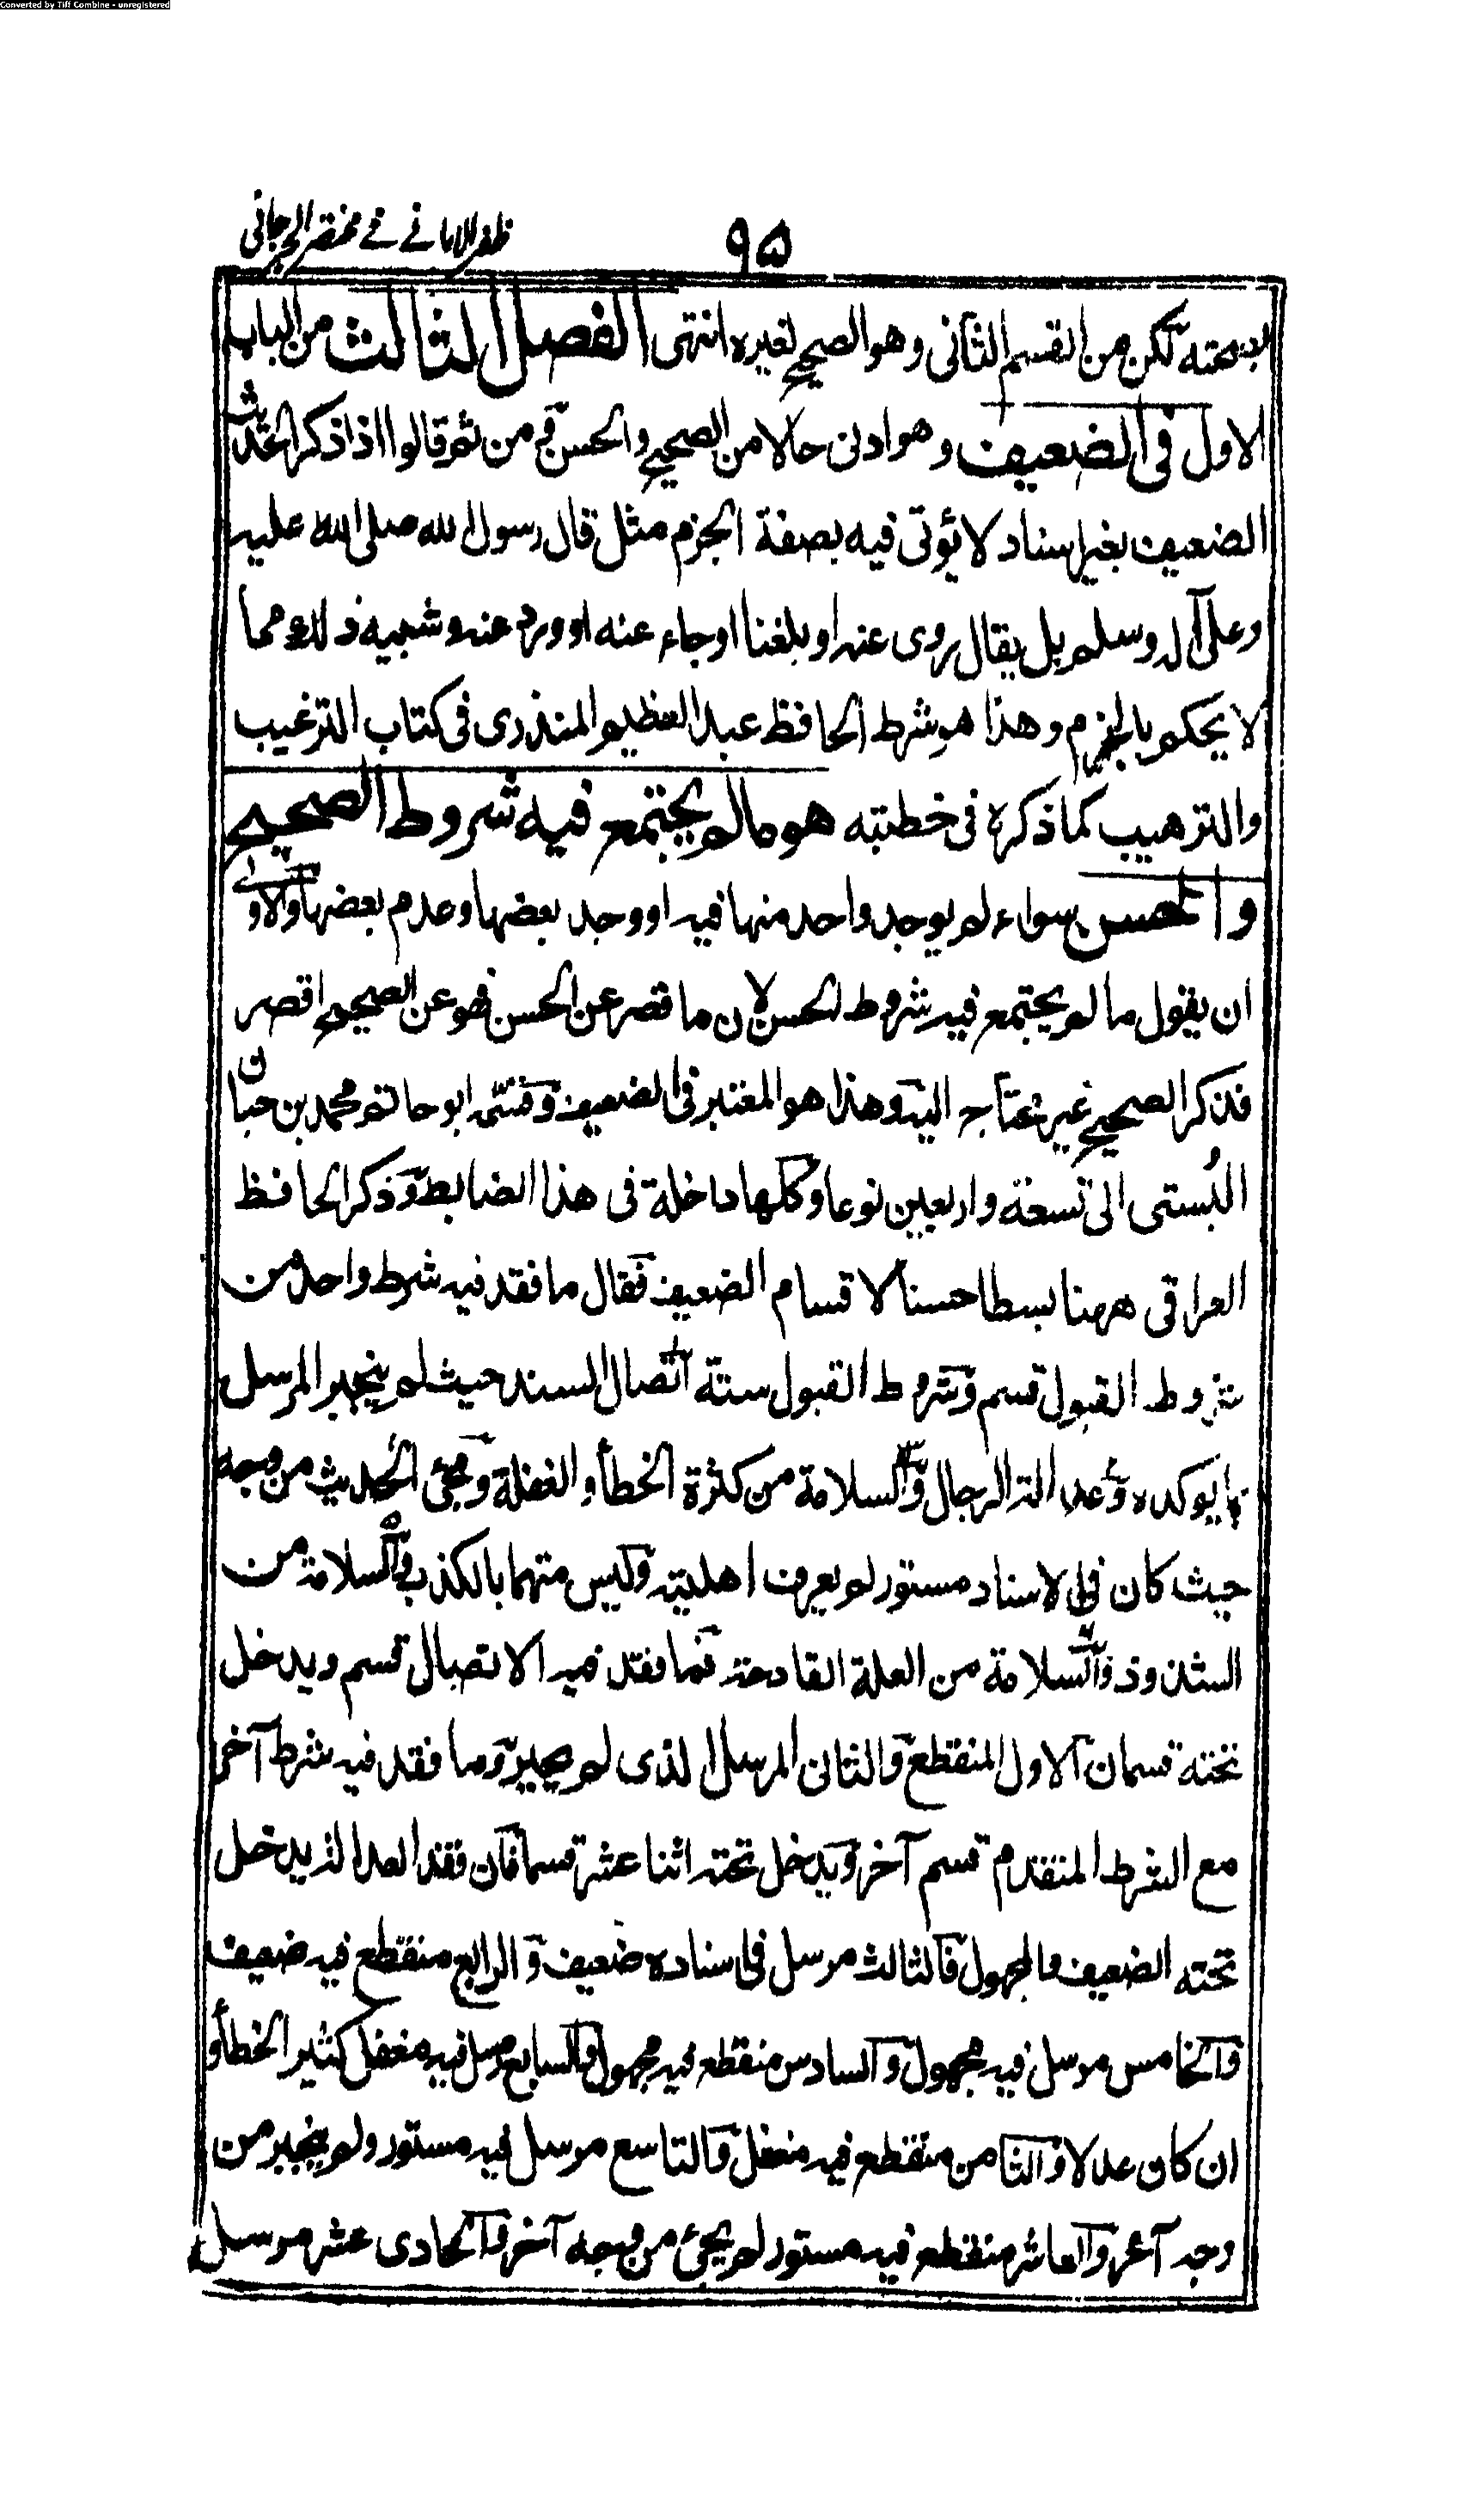 Converted by Tiff Combine - unregistered
٩٥
ظفر الامانی فی مختصر الجرجانی
بصحته لكن من القسم الثانى وهو الصحيح لغيره انتهى الفصل الثالث من الباب
الاول فى الضعيف وهو ادنى حالا من الصحيح والحسن ومن ثم قالوا اذا ذكر الحديث
الضعيف بغير اسناد لا يؤتى فيه بصفة الجزم مثل قال رسول الله صلى الله عليه
وعلى آله وسلم بل يقال روى عنه او بلغنا او جاء عنه او ورد عنه وشبيه ذلك مما
لا يحكم بالجزم وهذا هو شرط الحافظ عبد العظيم المنذرى فى كتاب الترغيب
والترهيب كما ذكره فى خطبته هو ما لم يجتمع فيه شروط الصحيح
والحسن سواء لم يوجد واحد منها فيه او وجد بعضها وعدم بعضها والاولى
ان يقول ما لم يجتمع فيه شروط الحسن لان ما قصر عن الحسن فهو عن الصحيح اقصر
فذكر الصحيح غير محتاج اليه وهذا هو المعتبر فى الضعيف وقسمه ابو حاتم محمد بن حبان
البُستى الى تسعة واربعين نوعا وكلها داخلة فى هذا الضابط وذكر الحافظ
العراقى ههنا بسطا حسنا لاقسام الضعيف فقال ما فقد فيه شرط واحد من
شروط القبول قسم وشروط القبول ستة اتصال السند حيث لم ينجبر المرسل
بما يوكده وعدالة الرجال والسلامة من كثرة الخطأ والغفلة ومجئ الحديث من وجه
حيث كان فى الاسناد مستور لم يعرف اهليته وليس متهما بالكذب والسلامة من
الشذوذ والسلامة من العلة القادحة فما فقد فيه الاتصال قسم ويدخل
تحته قسمان الاول المنقطع والثانى المرسل الذى لم يجبر وما فقد فيه شرط آخر
مع الشرط المتقدم قسم آخر ويدخل تحته اثنا عشر قسما فان فقد العدالة يدخل
تحته الضعيف والمجهول فالثالث مرسل فى اسناده ضعيف والرابع منقطع فيه ضعيف
والخامس مرسل فيه مجهول والسادس منقطع فيه مجهول والسابع مرسل فيه مغفل كثير الخطأ و
ان كان عدلا والثامن منقطع فيه مغفل والتاسع مرسل فيه مستور ولم ينجبر من
وجه آخر والعاشر منقطع فيه مستور لم يجئ من وجه آخر والحادى عشر مرسل